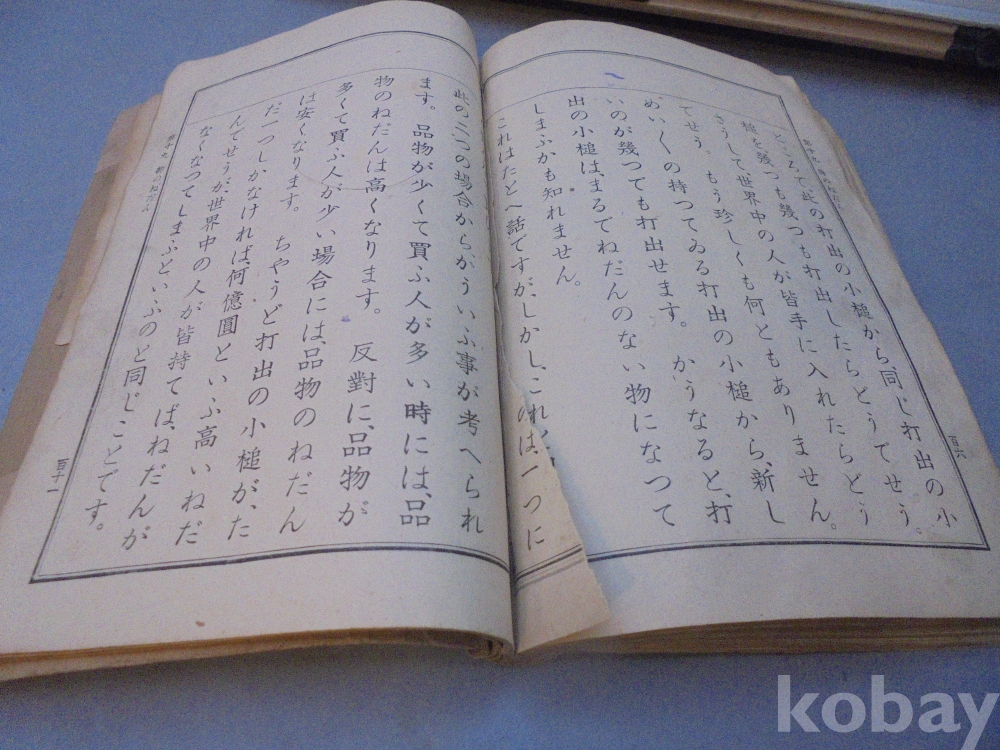 ところで此の打出の小槌から、同じ打出の小
槌を幾つも幾つも打出したらどうでせう。
さうして、世界中の人が皆手に入れたらどう
でせう。もう珍しくも何ともありません。
めい〱の持つてゐる打出の小槌から、新し
いのが幾つでも打出せます。かうなると、打
出の小槌は、まるでねだんのない物になつて
しまふかも知れません。
これはたとへ話ですが、しかし、これ のは、一つに
此の二つの場合からかういふ事が考へられ
ます。品物が少くて買ふ人が多い時には、品
物のねだんは高くなります。反對に、品物が
多くて買ふ人が少い場合には、品物のねだん
は安くなります。ちやうど打出の小槌が、た
だ一つしかなければ、何億圓といふ高いねだ
んでせうが、世界中の人が皆持てば、ねだんが
なくなつてしまふといふのと同じことです。
百十一
kobay